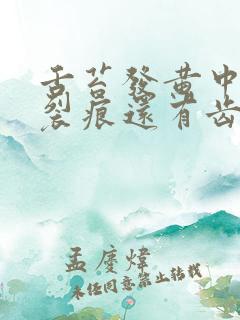 舌苔发黄中
裂痕还有齿
孟庆炜
未经同意禁止转载